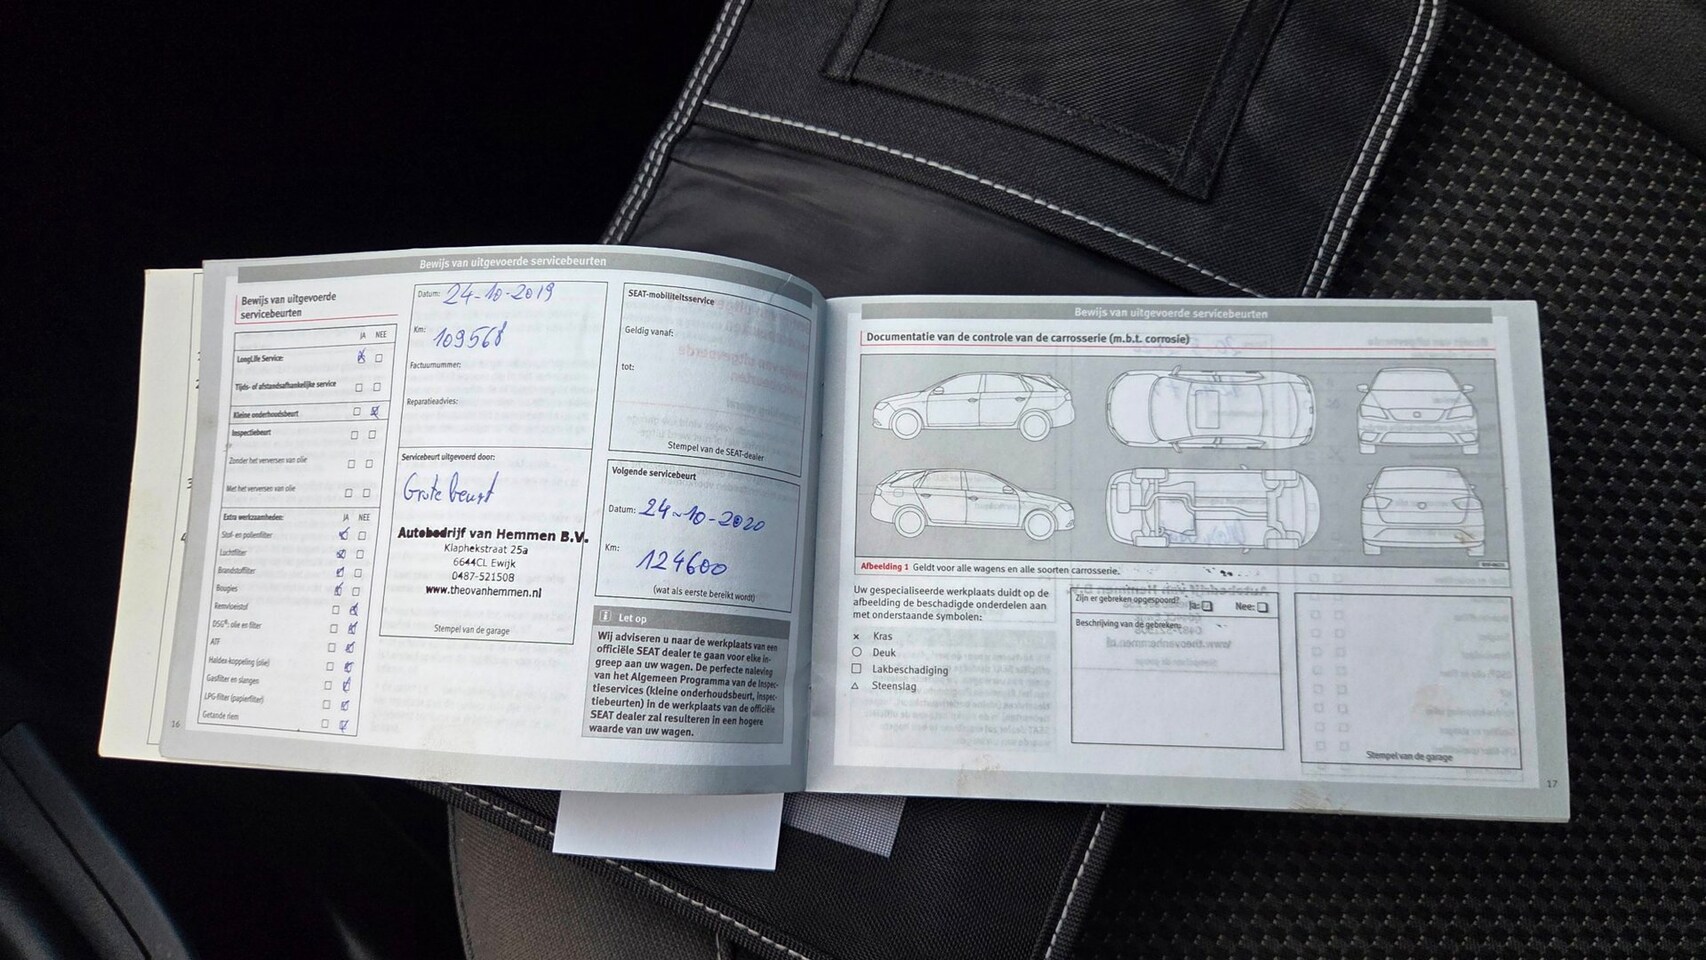 Bewijs van uitgevoerde servicebeurten
Bewijs van uitgevoerde
servicebeurten
JA NEE
LongLife Service:
Tijds- of afstandsafhankelijke service
Kleine onderhoudsbeurt
Inspectiebeurt
Zonder het verversen van olie
Met het verversen van olie
Extra werkzaamheden: JA NEE
Stof- en pollenfilter
Luchtfilter
Brandstoffilter
Bougies
Remvloeistof
DSG®: olie en filter
ATF
Haldex-koppeling (olie)
Gasfilter en slangen
LPG-filter (papierfilter)
Getande riem
16
Datum: 24-10-2019
Km: 109568
Factuurnummer:
Reparatieadvies:
Servicebeurt uitgevoerd door:
Grote beurt
Autobedrijf van Hemmen B.V.
Klaphekstraat 25a
6644CL Ewijk
0487-521508
www.theovanhemmen.nl
Stempel van de garage
SEAT-mobiliteitsservice
Geldig vanaf:
tot:
Stempel van de SEAT-dealer
Volgende servicebeurt
Datum: 24-10-2020
Km: 124600
(wat als eerste bereikt wordt)
i Let op
Wij adviseren u naar de werkplaats van een
officiële SEAT dealer te gaan voor elke in-
greep aan uw wagen. De perfecte naleving
van het Algemeen Programma van de Inspec-
tieservices (kleine onderhoudsbeurt, inspec-
tiebeurten) in de werkplaats van de officiële
SEAT dealer zal resulteren in een hogere
waarde van uw wagen.
Bewijs van uitgevoerde servicebeurten
Documentatie van de controle van de carrosserie (m.b.t. corrosie)
Afbeelding 1 Geldt voor alle wagens en alle soorten carrosserie.
Uw gespecialiseerde werkplaats duidt op de
afbeelding de beschadigde onderdelen aan
met onderstaande symbolen:
× Kras
○ Deuk
□ Lakbeschadiging
△ Steenslag
Zijn er gebreken opgespoord? Ja: Nee:
Beschrijving van de gebreken:
Stempel van de garage
17